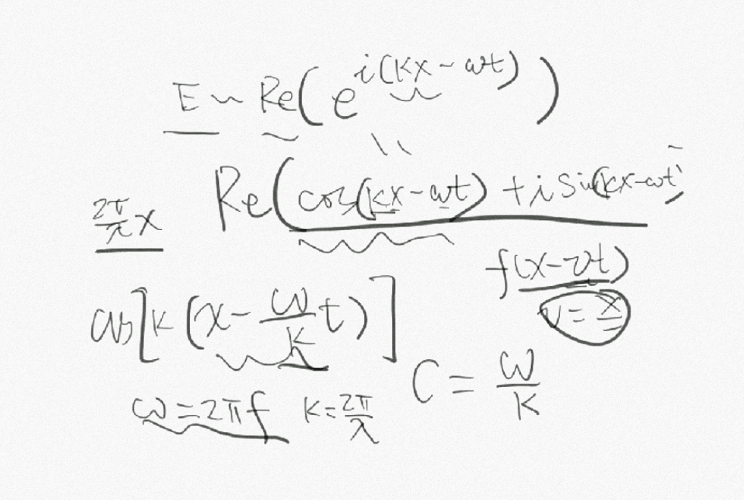 E ~ Re(e^{i(kx-ωt)})
"
Re(cos(kx-ωt) + i sin(kx-ωt)
2π/λ x
f(x-vt)
v = x
cos[k(x - ω/k t)]
C = ω/k
ω = 2πf k = 2π/λ